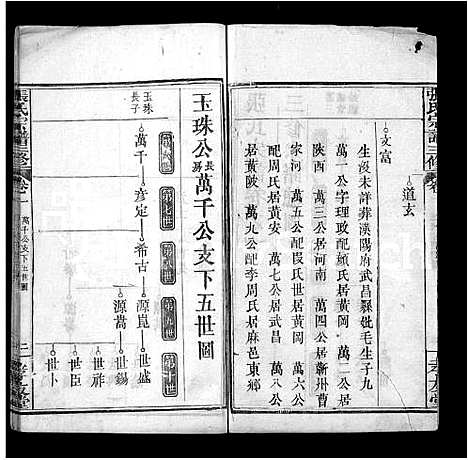 張氏宗譜三修
文富
道玄
生沒未詳葬漢陽府武昌縣妣毛生子九
萬一公字理政配顏氏居黃岡 萬二公居
陝西 萬三公居河南 萬四公居蘄州曹
家河 萬五公配段氏世居黃岡 萬六公
配周氏居黃岡 萬七公居武昌 萬八公
居黃陂 萬九公配李周氏居麻邑東鄉
孝友堂
玉珠公長房萬千公支下五世圖
第六世
第七世
第八世
第九世
第十世
玉珠長子
萬千
彥定
希古
源崑
世盛
源嵩
世錫
世祚
世臣
世卜
張氏宗譜三修
卷一
萬千公支下五世圖
孝友堂